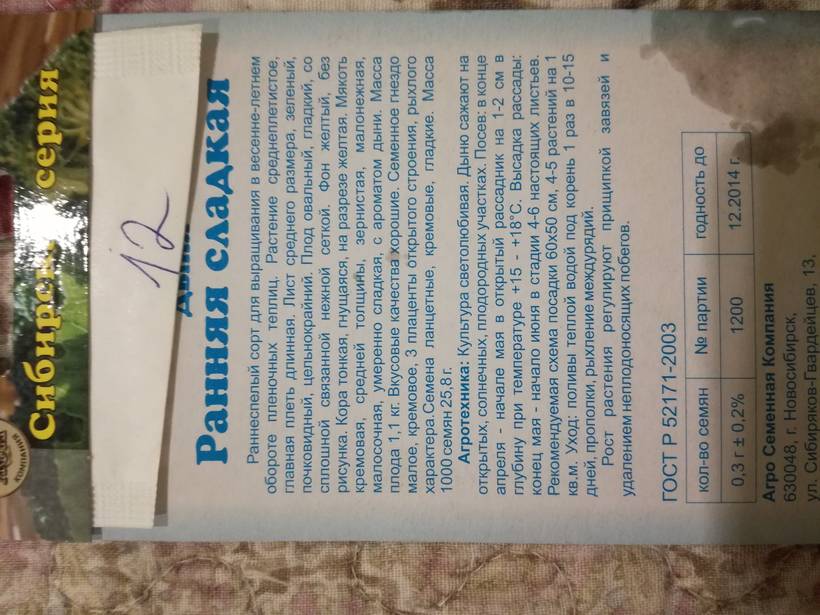 серия
12
Ранняя сладкая
Раннеспелый сорт для выращивания в весенне-летнем
обороте пленочных теплиц. Растение среднеплетистое,
главная плеть длинная. Лист среднего размера, зеленый,
почковидный, цельнокрайний. Плод овальный, гладкий, со
сплошной связанной нежной сеткой. Фон желтый, без
рисунка. Кора тонкая, гнущаяся, на разрезе желтая. Мякоть
кремовая, средней толщины, зернистая, малонежная,
малосочная, умеренно сладкая, с ароматом дыни. Масса
плода 1,1 кг. Вкусовые качества хорошие. Семенное гнездо
малое, кремовое, 3 плаценты открытого строения, рыхлого
характера.Семена ланцетные, кремовые, гладкие. Масса
1000 семян 25,8 г.
Агротехника: Культура светолюбивая. Дыню сажают на
открытых, солнечных, плодородных участках. Посев: в конце
апреля - начале мая в открытый рассадник на 1-2 см в
глубину при температуре +15 - +18°С. Высадка рассады:
конец мая - начало июня в стадии 4-6 настоящих листьев.
Рекомендуемая схема посадки 60х50 см, 4-5 растений на 1
кв.м. Уход: поливы теплой водой под корень 1 раз в 10-15
дней, прополки, рыхление междурядий.
Рост растения регулируют прищипкой завязей и
удалением неплодоносящих побегов.
ГОСТ Р 52171-2003
кол-во семян № партии годность до
0,3 г ± 0,2% 1200 12.2014 г.
Агро Семенная Компания
630048, г. Новосибирск,
ул. Сибиряков-Гвардейцев, 13,